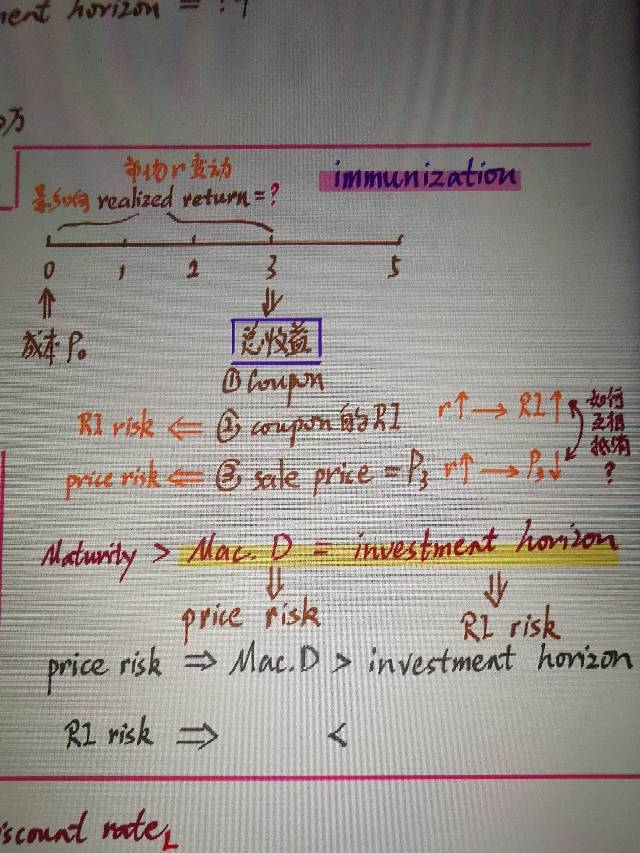 ment horizon = ?
万
市场r变动
immunization
影响 realized return = ?
0 1 2 3 5
⇑ ⇓
成本 P₀ 总收益
① coupon
RI risk ⇐ ② coupon的RI r↑ → RI↑
price risk ⇐ ③ sale price = P₃ r↑ → P₃↓
如何
互相
抵消
?
Maturity > Mac. D = investment horizon
⇓ ⇓
price risk RI risk
price risk ⇒ Mac.D > investment horizon
RI risk ⇒ <
iscount rate